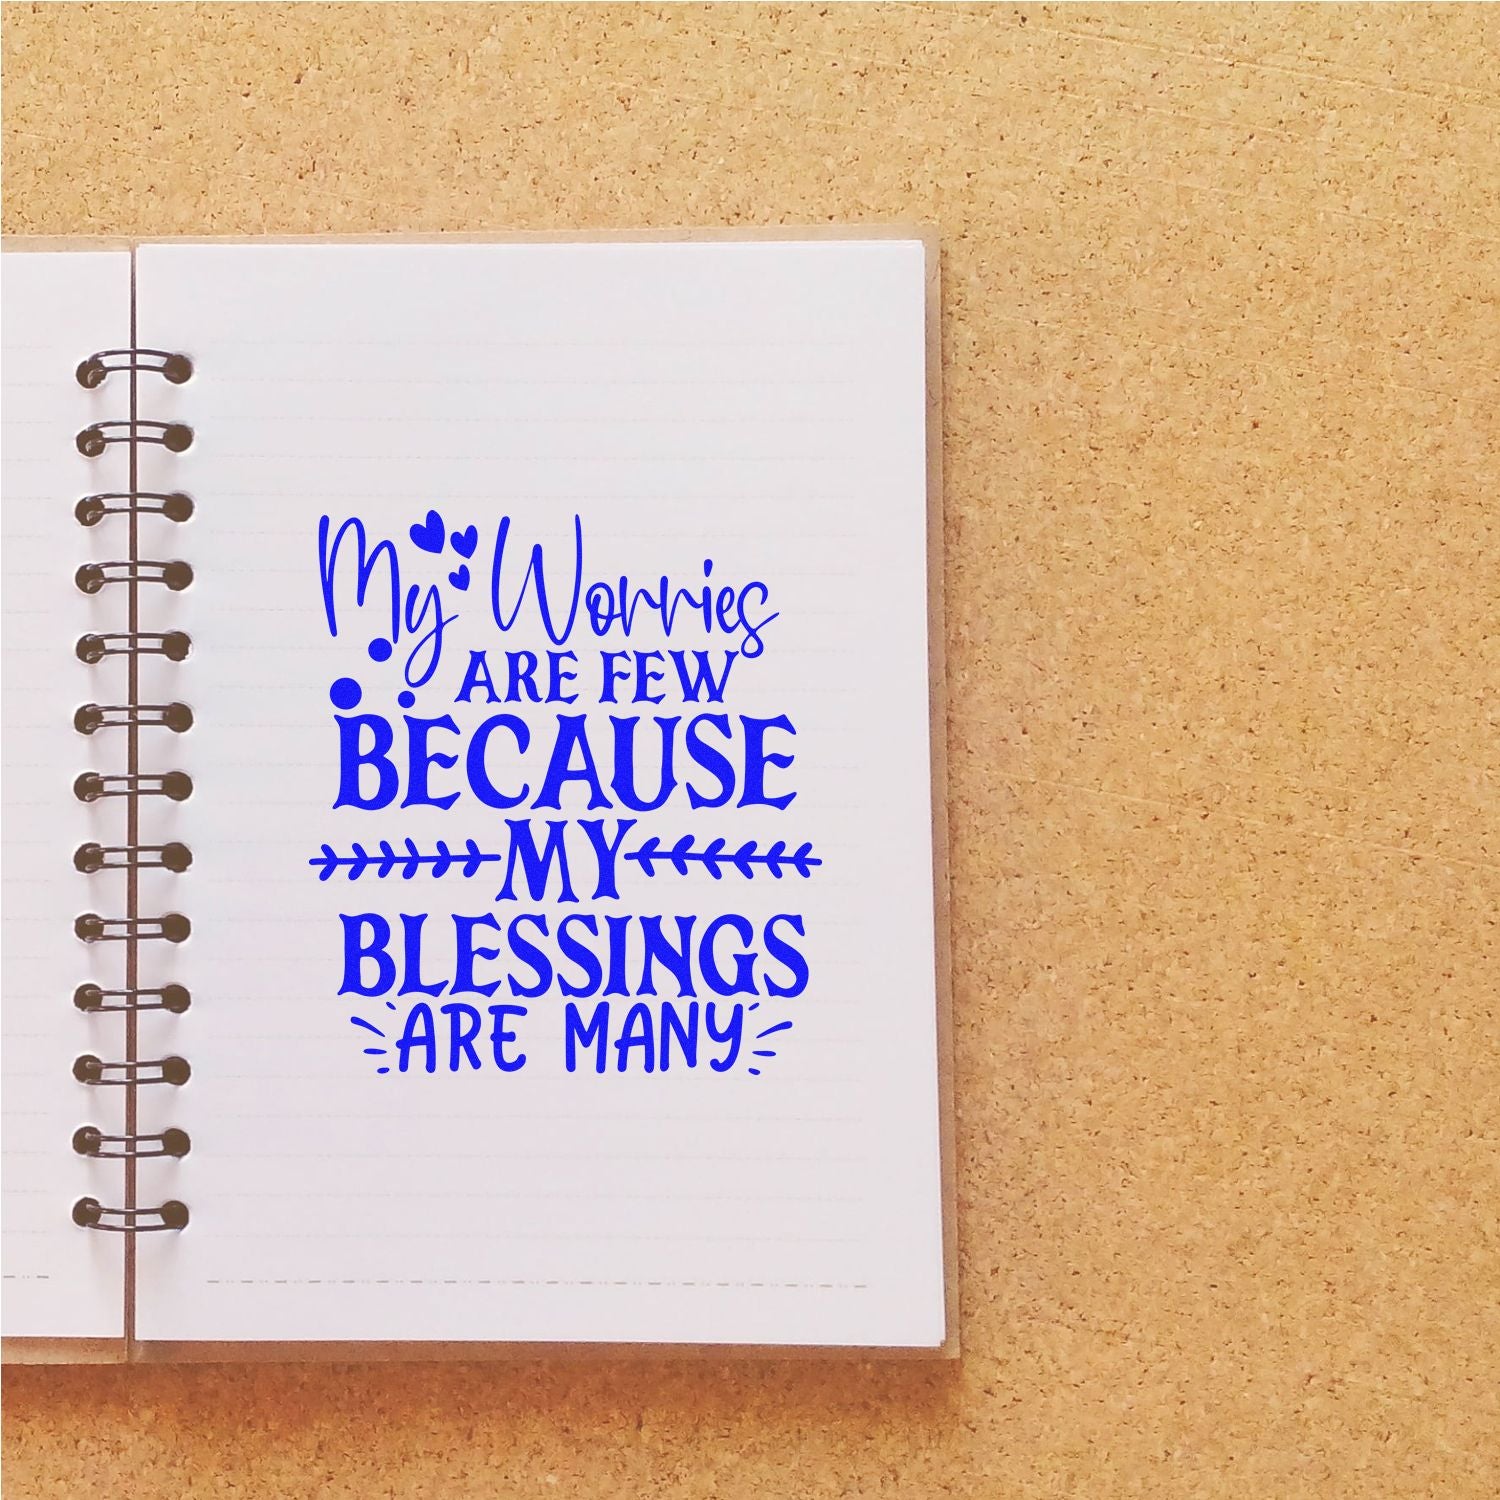 My Worries
ARE FEW
BECAUSE
MY
BLESSINGS
ARE MANY